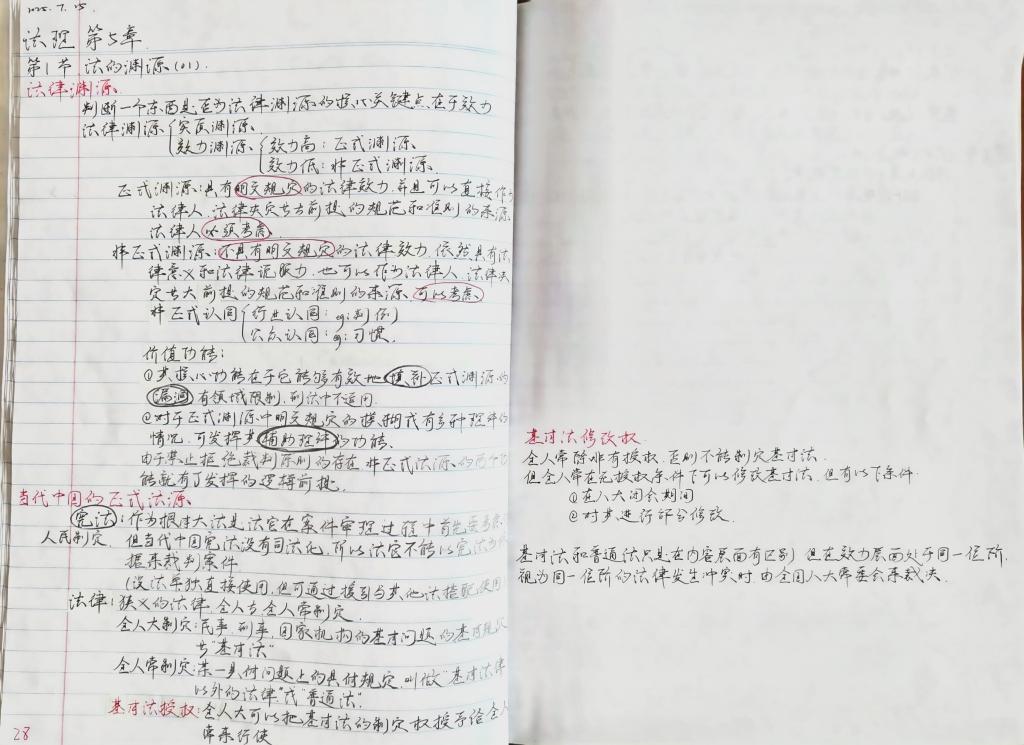 2025.7.15.
法理 第5章.
第1节 法的渊源(01).
法律渊源
判断一个东西是否为法律渊源的核心关键点在于效力
法律渊源 实质渊源
效力渊源 效力高：正式渊源
效力低：非正式渊源
正式渊源：具有明文规定的法律效力，并且可以直接作为
法律人 法律决定大前提的规范和准则的来源
法律人必须考虑.
非正式渊源：不具有明文规定的法律效力，依然具有法
律意义和法律说服力，也可以作为法律人 法律决
定大前提的规范和准则的来源 可以考虑
非正式认同 行业认同：eg：判例
公众认同：eg：习惯.
价值功能：
①其核心功能在于它能够有效地填补正式渊源的
漏洞 有领域限制，刑法中不适用
②对于正式渊源中明文规定的模糊或有多种理解的
情况，可发挥其辅助理解的功能.
由于禁止拒绝裁判原则的存在 非正式法源的两个功
能就有了发挥的逻辑前提.
当代中国的正式法源
宪法：作为根本大法是法官在案件审理过程中首先要考虑
人民制定. 但当代中国宪法没有司法化，所以法官不能以宪法为依
据来裁判案件
(没法单独直接使用，但可通过援引与其他法搭配使用
法律：狭义的法律，全人大，全人常制定
全人大制定：民事，刑事，国家机构的基本问题的基本规定
“基本法”
全人常制定：某一具体问题上的具体规定，叫做“基本法律
以外的法律”或“普通法”.
基本法授权：全人大可以把基本法的制定权授予给全人
常来行使
28
基本法修改权
全人常除非有授权，否则不能制定基本法.
但全人常在无授权条件下可以修改基本法，但有以下条件
①在人大闭会期间
②对其进行部分修改.
基本法和普通法只是在内容层面有区别，但在效力层面处于同一位阶，
视为同一位阶的法律发生冲突时 由全国人大常委会来裁决.